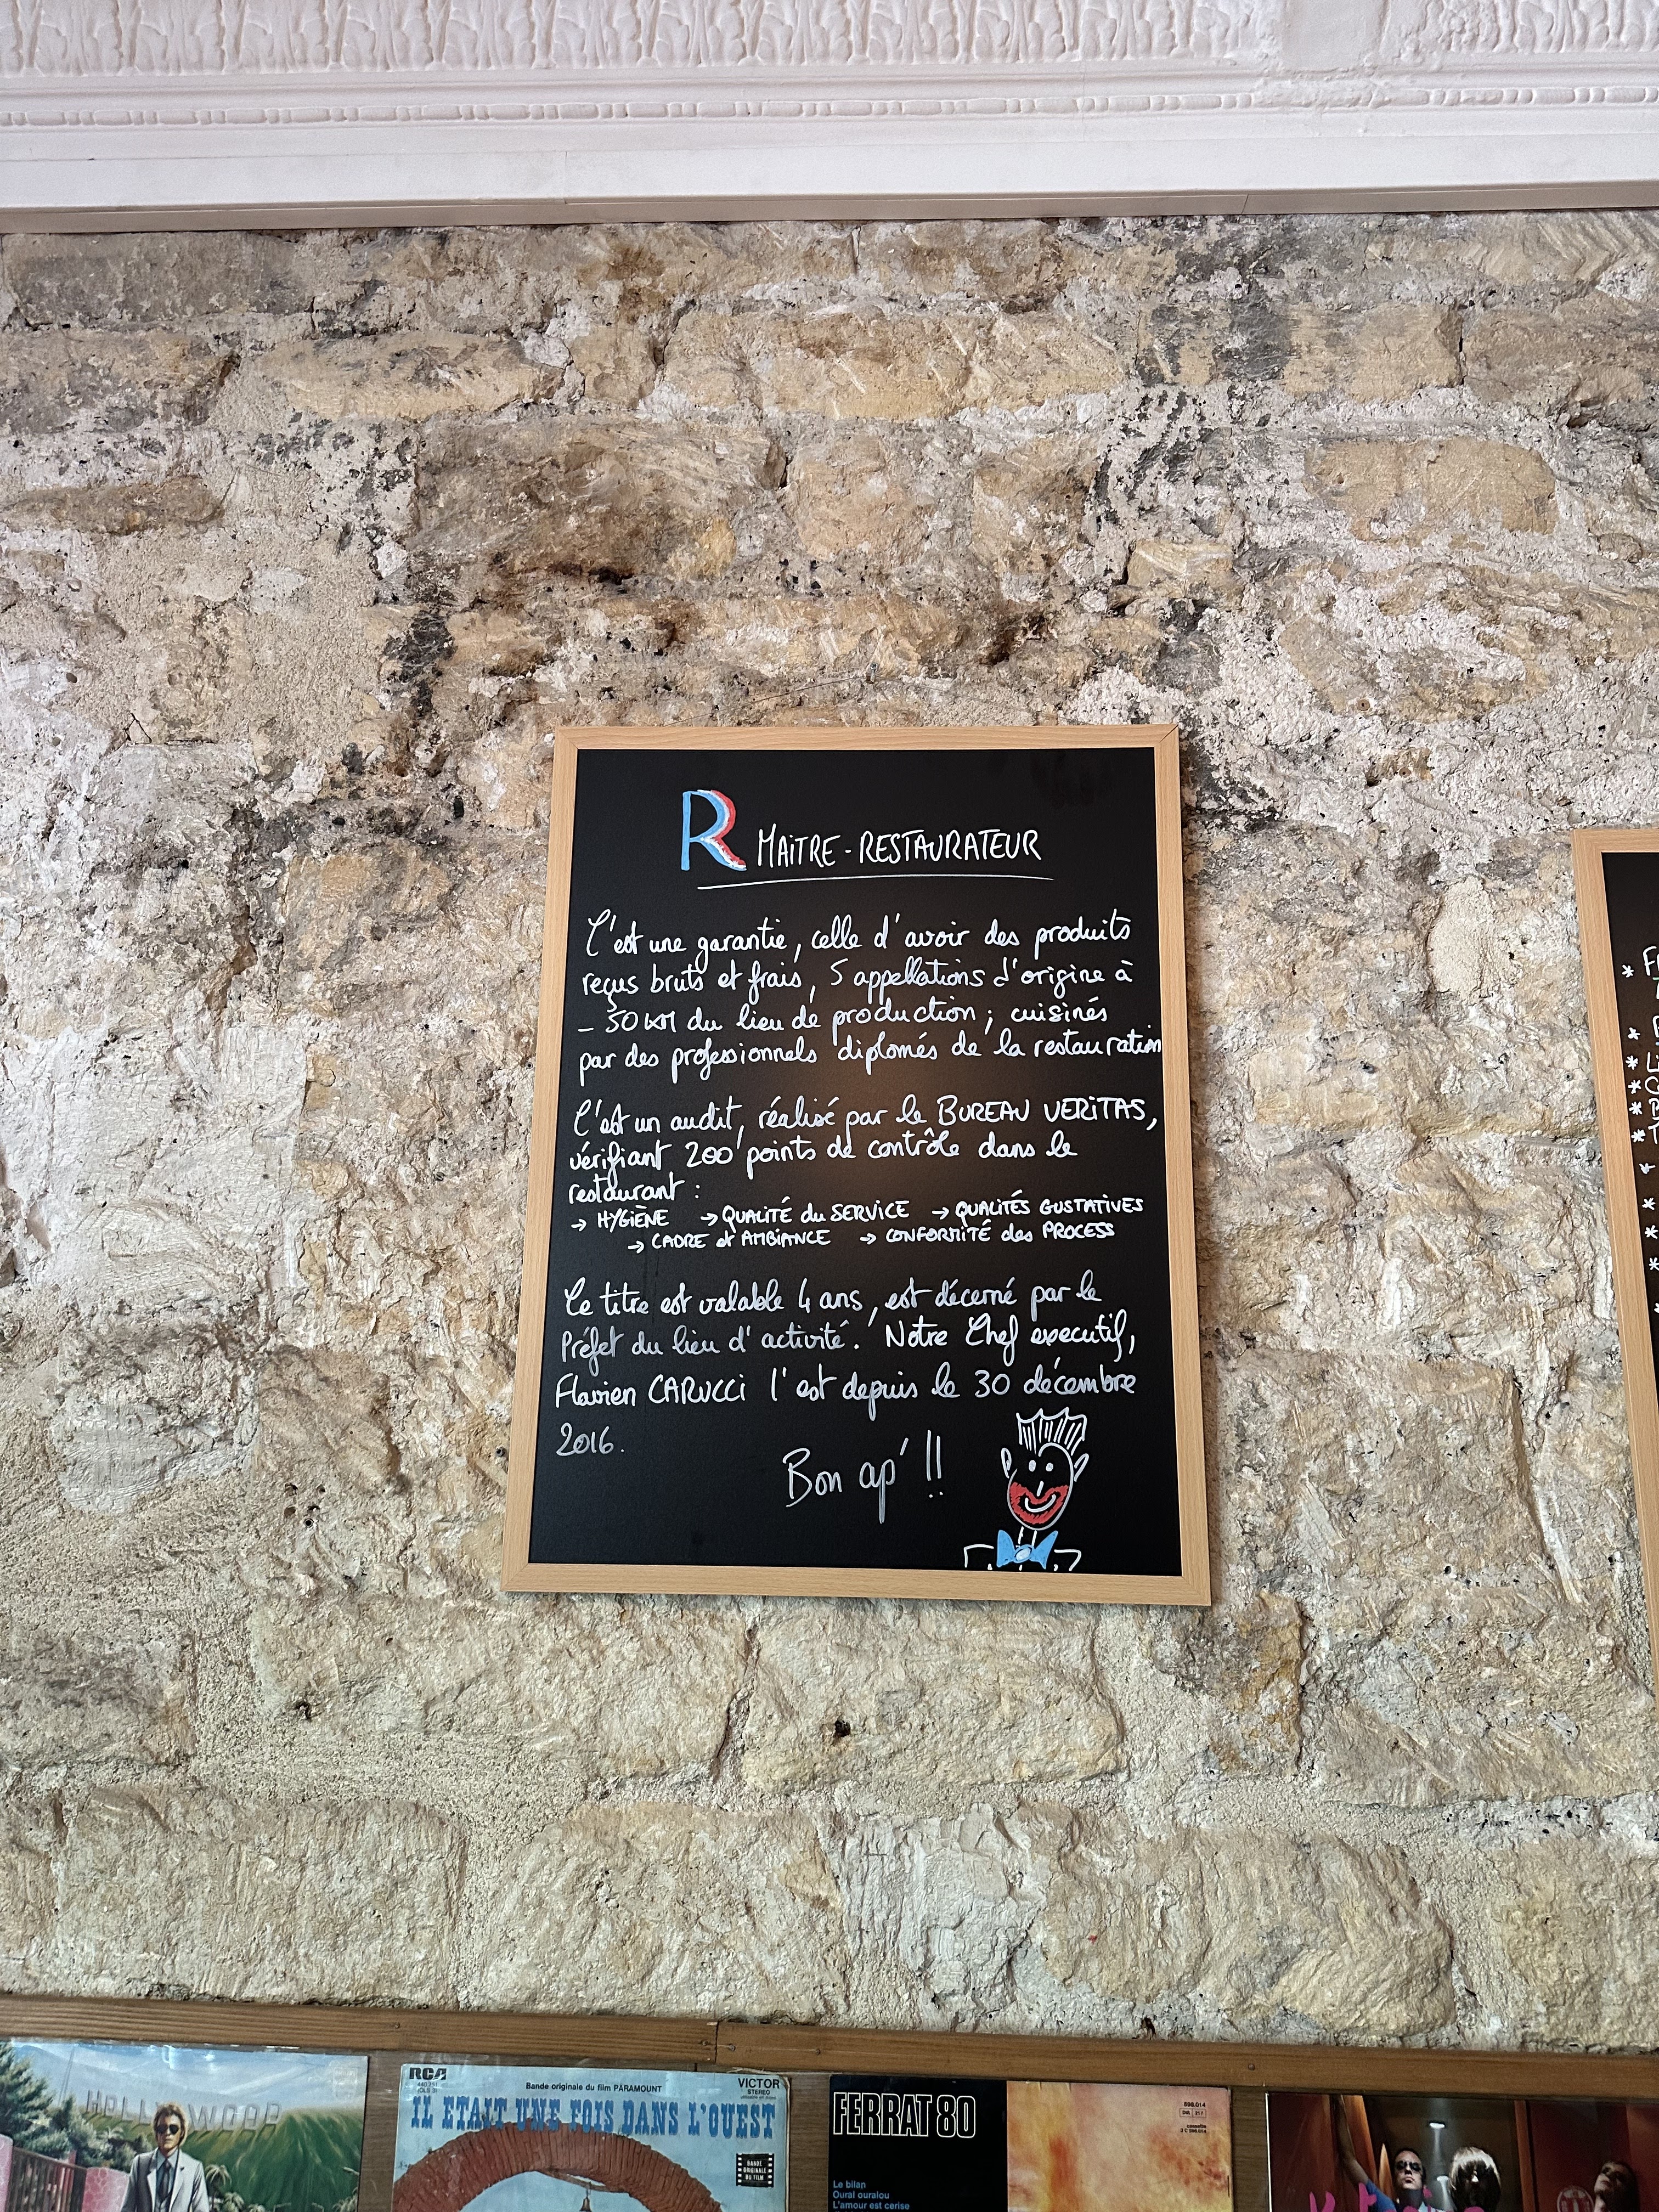 R MAiTRE-RESTAURATEUR
C'est une garantie, celle d'avoir des produits
reçus bruts et frais, 5 appellations d'origine à
- 50 KM du lieu de production ; cuisinés
par des professionnels diplomés de la restauration
C'est un audit, réalisé par le BUREAU VERiTAS,
vérifiant 200 points de contrôle dans le
restaurant :
→ HYGIÈNE → QUALITÉ du SERVICE → QUALITÉS GUSTATIVES
→ CADRE et AMBIANCE → CONFORMITÉ des PROCESS
Le titre est valable 4 ans, est décerné par le
Préfet du lieu d'activité. Notre Chef executif,
Flavien CARUCCi l'est depuis le 30 décembre
2016.
Bon ap' !!
HOLLYWOOD
RCA
Bande originale du film PARAMOUNT
VICTOR
STEREO
IL ETAIT UNE FOIS DANS L'OUEST
BANDE
ORIGINALE
DU FILM
FERRAT 80
Le bilan
Oural ouralou
L'amour est cerise